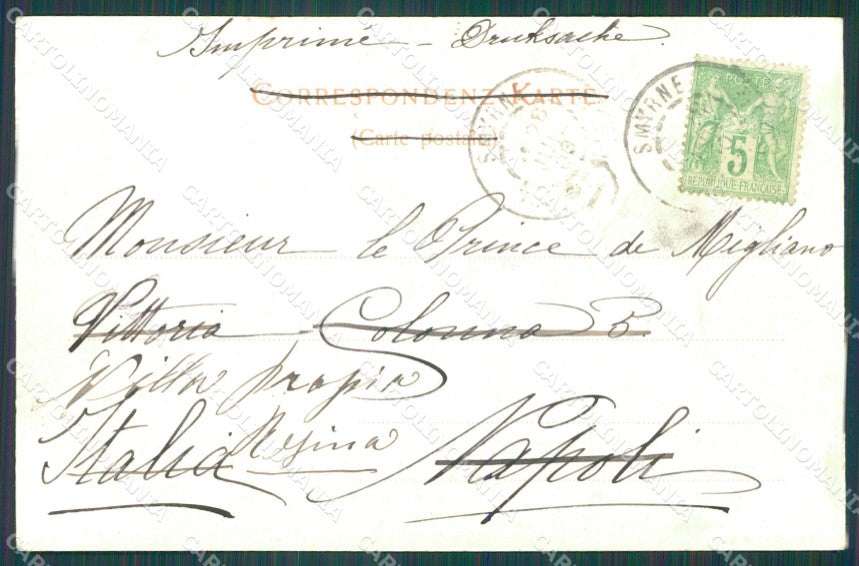 Imprimé – Drucksache.
CORRESPONDENZ-KARTE
(Carte postale)
SMYRNE
SMYRNE
POSTE
5
REPUBLIQUE FRANÇAISE
Monsieur le Prince de Migliano
Vittoria Colonna 5
Villa propria
Italia Resina Napoli
CARTOLINOMANIA